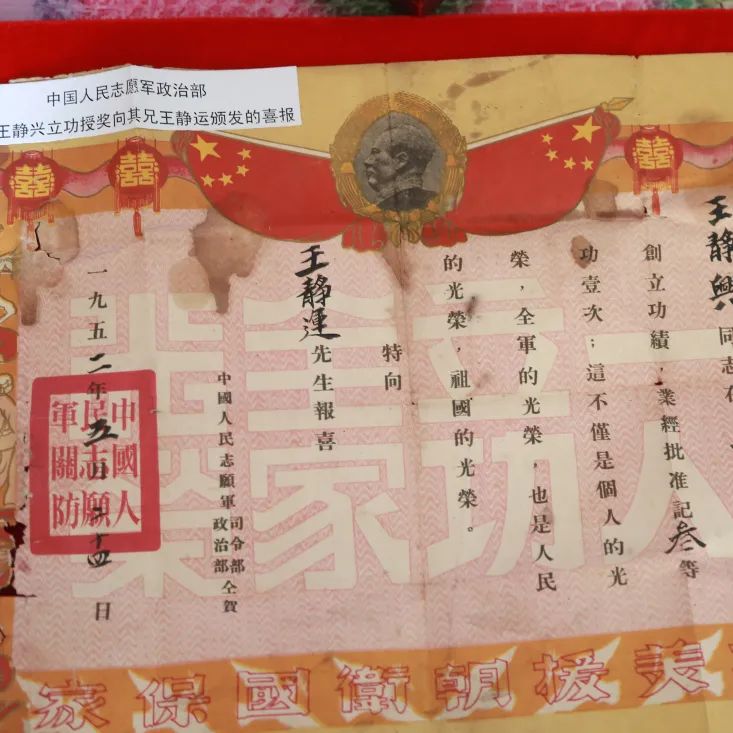 中国人民志愿军政治部
王静兴立功授奖向其兄王静运颁发的喜报
囍
囍
囍
王静興同志在
創立功績，業經批准記叁等
功壹次；這不僅是個人的光
榮，全軍的光榮，也是人民
的光榮，祖國的光榮。
特向
王静運先生報喜
中國人民志願軍
司令部
政治部
仝賀
一九五二年五月十四日
中國人
民志願
軍關防
人
立功
全家
光榮
美援朝衛國保家